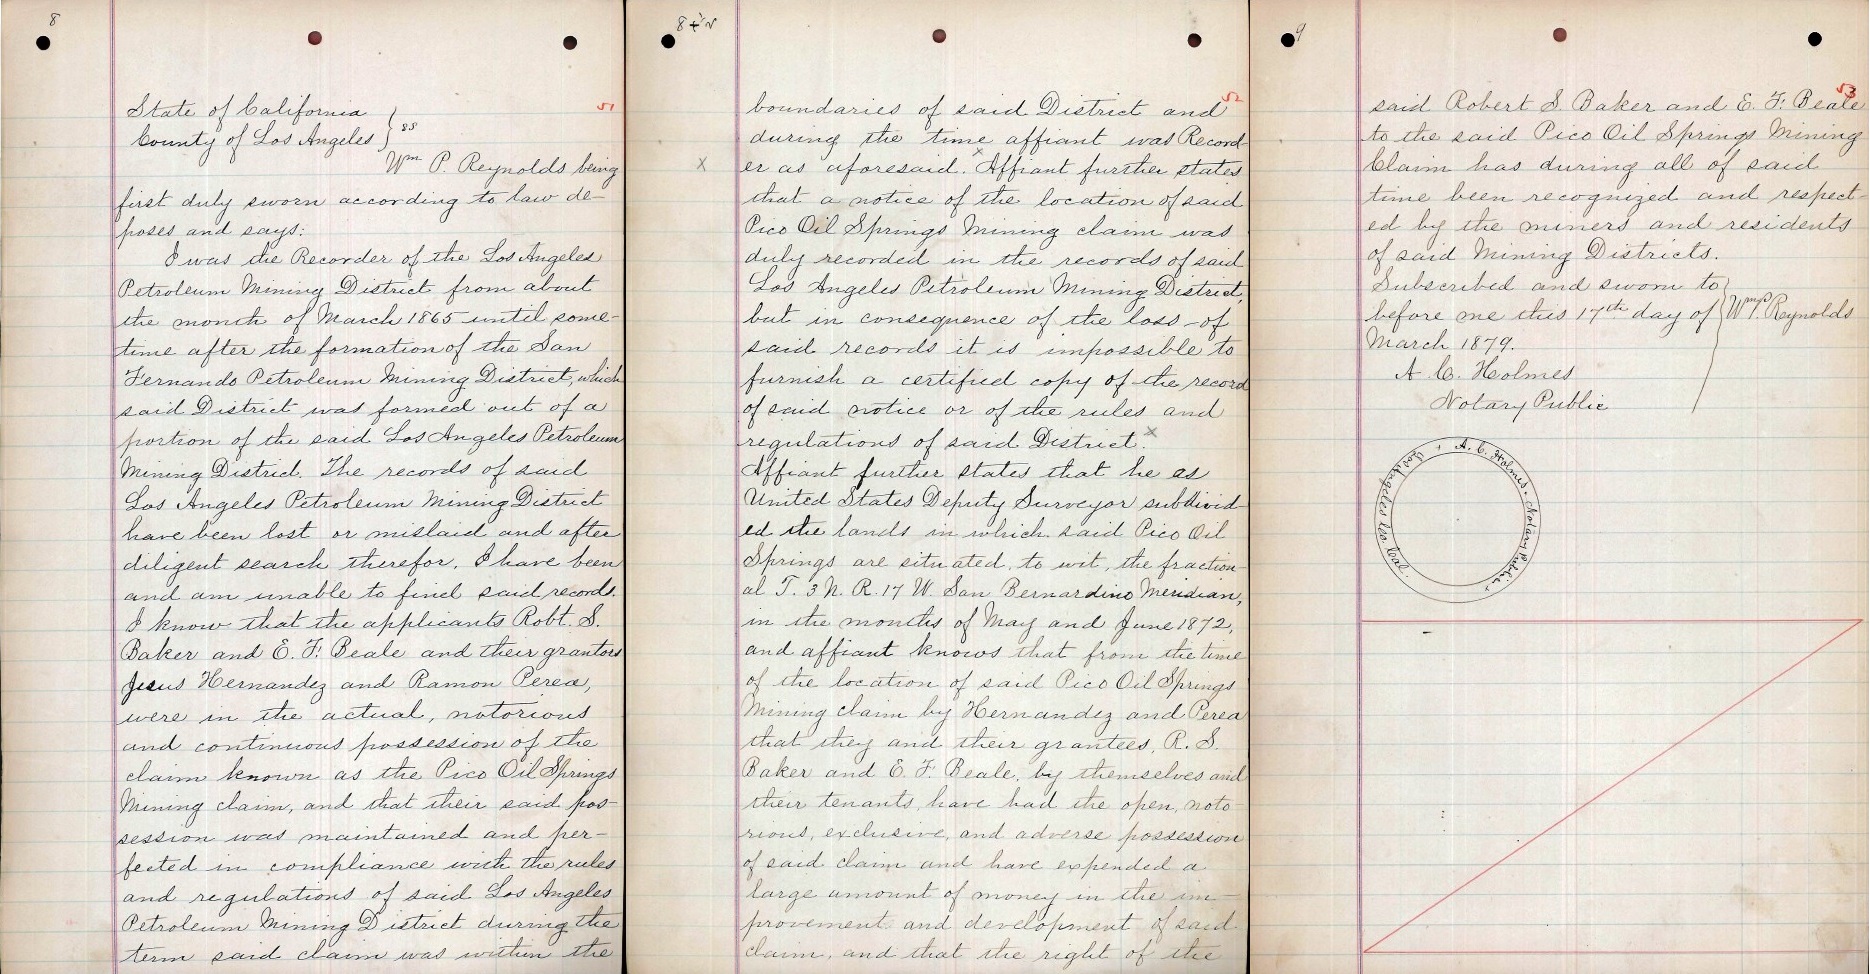 8
51
State of California
County of Los Angeles } ss
Wm P. Reynolds being
first duly sworn according to law de-
poses and says:
I was the Recorder of the Los Angeles
Petroleum Mining District from about
the month of March 1865 until some-
time after the formation of the San
Fernando Petroleum Mining District, which
said District was formed out of a
portion of the said Los Angeles Petroleum
Mining District. The records of said
Los Angeles Petroleum Mining District
have been lost or mislaid and after
diligent search therefor, I have been
and am unable to find said records.
I know that the applicants Robt. S.
Baker and E. F. Beale and their grantors
Jesus Hernandez and Ramon Perea,
were in the actual, notorious
and continuous possession of the
claim known as the Pico Oil Springs
Mining claim, and that their said pos-
session was maintained and per-
fected in compliance with the rules
and regulations of said Los Angeles
Petroleum Mining District during the
term said claim was within the
52
boundaries of said District and
during the time affiant was Record-
x er as aforesaid. x Affiant further states
that a notice of the location of said
Pico Oil Springs Mining claim was
duly recorded in the records of said
Los Angeles Petroleum Mining District,
but in consequence of the loss of
said records it is impossible to
furnish a certified copy of the record
of said notice or of the rules and
regulations of said District. x
Affiant further states that he as
United States Deputy Surveyor subdivid-
ed the lands in which said Pico Oil
Springs are situated, to wit, the fraction-
al T. 3 N. R. 17 W. San Bernardino Meridian,
in the months of May and June 1872,
and affiant knows that from the time
of the location of said Pico Oil Springs
Mining claim by Hernandez and Perea
that they and their grantees, R. S.
Baker and E. F. Beale, by themselves and
their tenants, have had the open, noto-
rious, exclusive, and adverse possession
of said claim and have expended a
large amount of money in the im-
provement and development of said
claim, and that the right of the
9
53
said Robert S. Baker and E. F. Beale
to the said Pico Oil Springs Mining
Claim has during all of said
time been recognized and respect-
ed by the miners and residents
of said Mining Districts.
Subscribed and sworn to
before me this 17th day of } Wm P. Reynolds
March 1879.
A. C. Holmes
Notary Public
+ A. C. Holmes. Notary Public +
Los Angeles Co Cal.